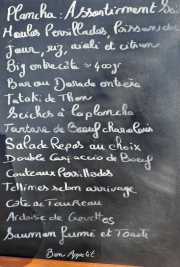 Plancha : Assortiment
Moules Persillades, Poisson du
Jour, riz, aïoli et citron
Big entrecôte ≈ 400gr
Bar ou Dorade entière
Tataki de Thon
Seiches à la plancha
Tartare de Boeuf charolais
Salade Repas au choix
Double Carpaccio de Boeuf
Couteaux Persillades
Tellines selon arrivage
Côte de Taureau
Ardoise de Crevettes
Saumon fumé et Toasts
Bon Appétit